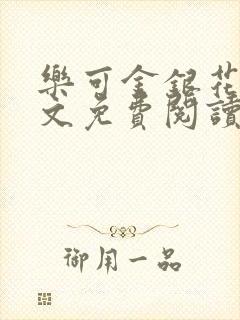 樂可金銀花
文免費閱讀
御用一品